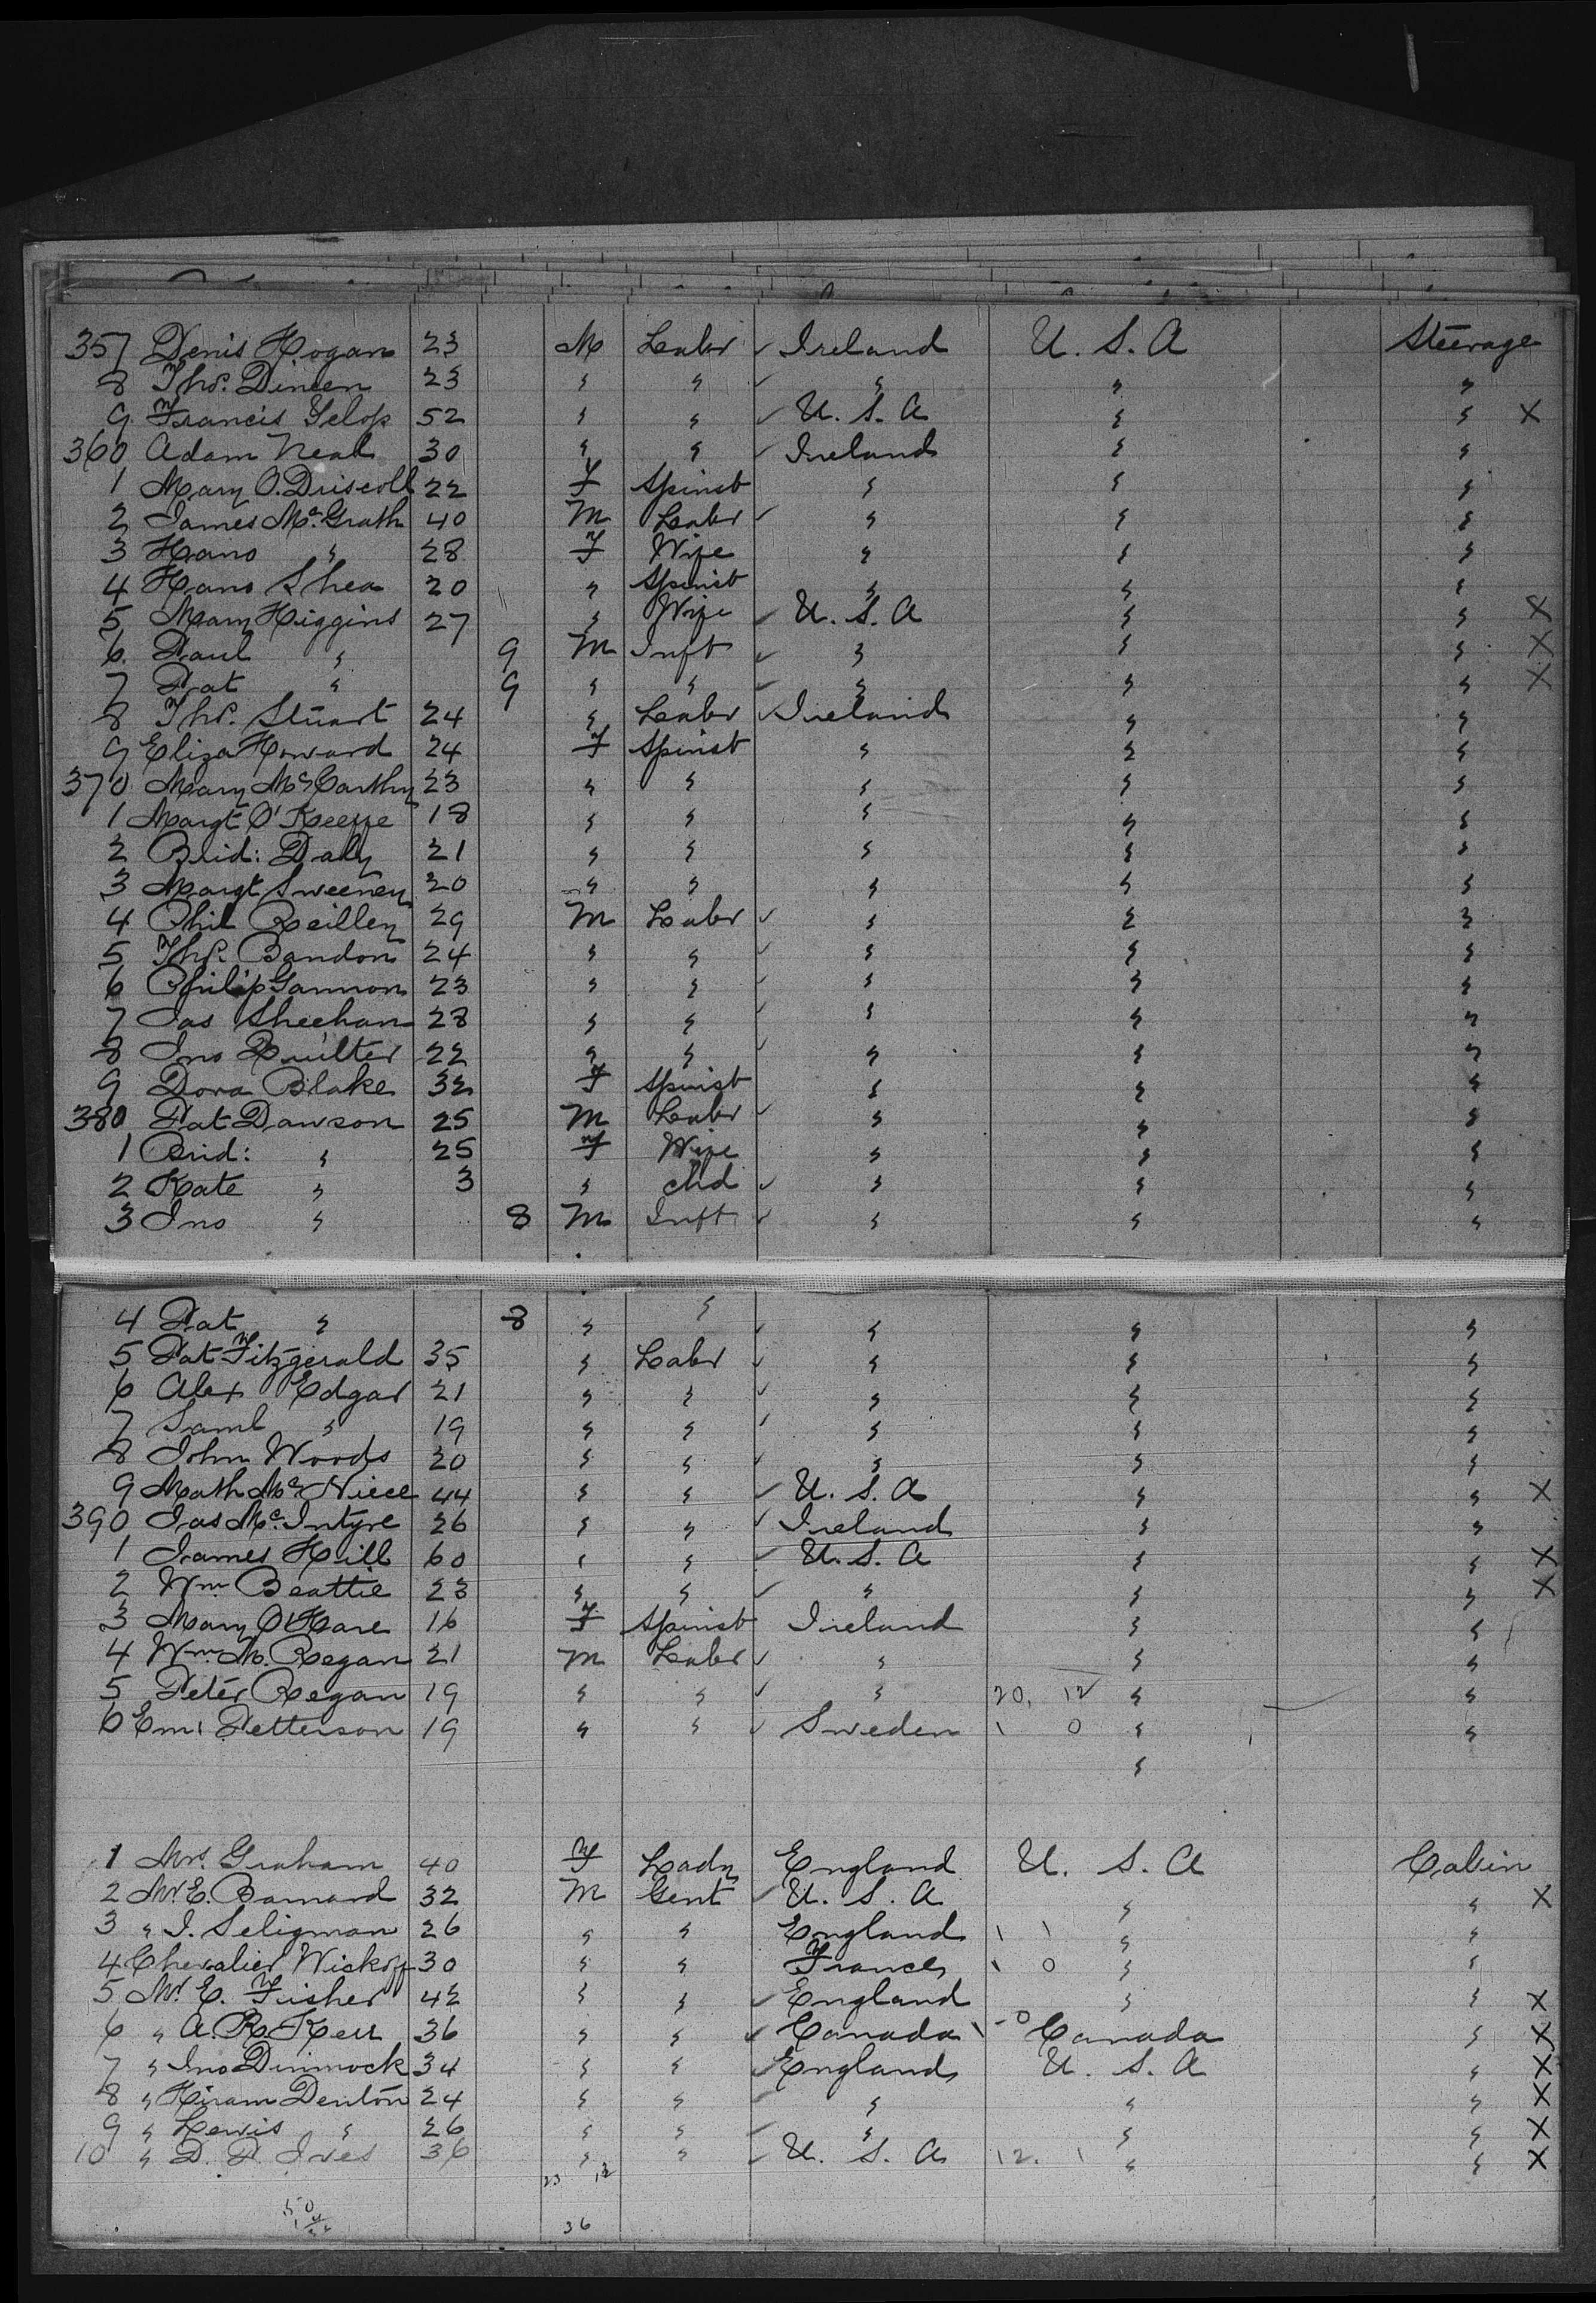 357 Denis Hogan 23 M Labr ✓ Ireland U. S. A Steerage
8 Thos. Dineen 23 " " ✓ " " "
9 Francis Gelop 52 " " ✓ U. S. A " " X
360 Adam Neal 30 " " ✓ Ireland " "
1 Mary O.Driscoll 22 F Spinst " " "
2 James Mc.Grath 40 M Labr ✓ " " "
3 Hano " 28 F Wife " " "
4 Hano Shea 20 " Spinst " " "
5 Mary Higgins 27 " Wife ✓ U. S. A " " X
6. Paul " 9 M Inft ✓ " " " X
7 Pat " 9 " " ✓ " " " X
8 Thos. Stuart 24 " Labr ✓ Ireland " "
9 Eliza Howard 24 F Spinst " " "
370 Mary McCarthy 23 " " " " "
1 Margt O'Keeffe 18 " " " " "
2 Brid: Daly 21 " " " " "
3 Margt Sweeney 20 " " " " "
4 Phil Reilley 29 M Labr ✓ " " "
5 Thos. Bandon 24 " " ✓ " " "
6 Philip Gannon 23 " " ✓ " " "
7 Jas Sheehan 28 " " ✓ " " "
8 Jno Quilter 22 " " ✓ " " "
9 Dora Blake 32 F Spinst " " "
380 Pat Dawson 25 M Labr ✓ " " "
1 Brid: " 25 F Wife " " "
2 Kate " 3 " chd ✓ " " "
3 Jno " 8 M Inft ✓ " " "
4 Pat " 8 " " ✓ " " "
5 Pat Fitzgerald 35 " Labr ✓ " " "
6 Alex Edgar 21 " " ✓ " " "
7 Saml " 19 " " ✓ " " "
8 John Woods 20 " " ✓ " " "
9 Math Mc.Niece 44 " " ✓ U. S. A " " X
390 Jas Mc.Intyre 26 " " ✓ Ireland " "
1 James Hill 60 " " ✓ U. S. A " " X
2 Wm Beattie 23 " " ✓ " " " X
3 Mary O'Hare 16 F Spinst Ireland " "
4 Wm. M. Regan 21 M Labr ✓ " " "
5 Peter Regan 19 " " ✓ " 20. 12 " "
6 Petterson 19 " " ✓ Sweden \ 0 " "
"
1 Mrs. Graham 40 F Lady England U. S. A Cabin
2 Mr E. Barnard 32 M Gent ✓ U. S. A " " X
3 " J. Seligman 26 " " England \ \ " "
4 Chevalier Wickoff 30 " " France \ 0 " "
5 Mr. E. Fisher 42 " " ✓ England " " X
6 " A. R. Kerr 36 " " ✓ Canada \ - 0 Canada " X
7 " Jno Dimmock 34 " " ✓ England U. S. A " X
8 " Hiram Denton 24 " " ✓ " " " X
9 " Lewis " 26 " " ✓ " " " X
10 " D. P. Ives 36 " " ✓ U. S. A 12. \ " " X
23 12
50
36